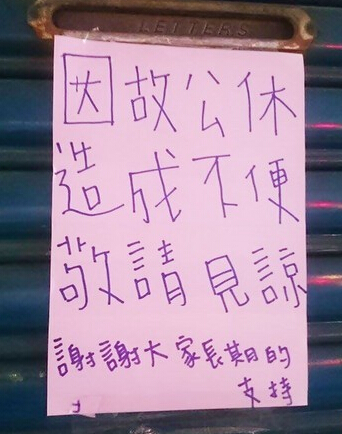 LETTERS
因故公休
造成不便
敬請見諒
謝謝大家長期的
支持